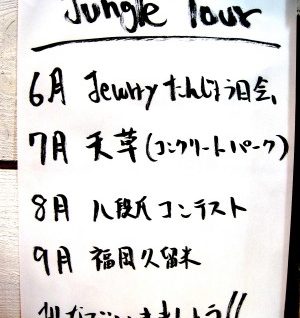 Jungle Tour
6月 Jewrry たんじょう日会、
7月 天草(コンクリートパーク)
8月 八段氏 コンテスト
9月 福岡久留米